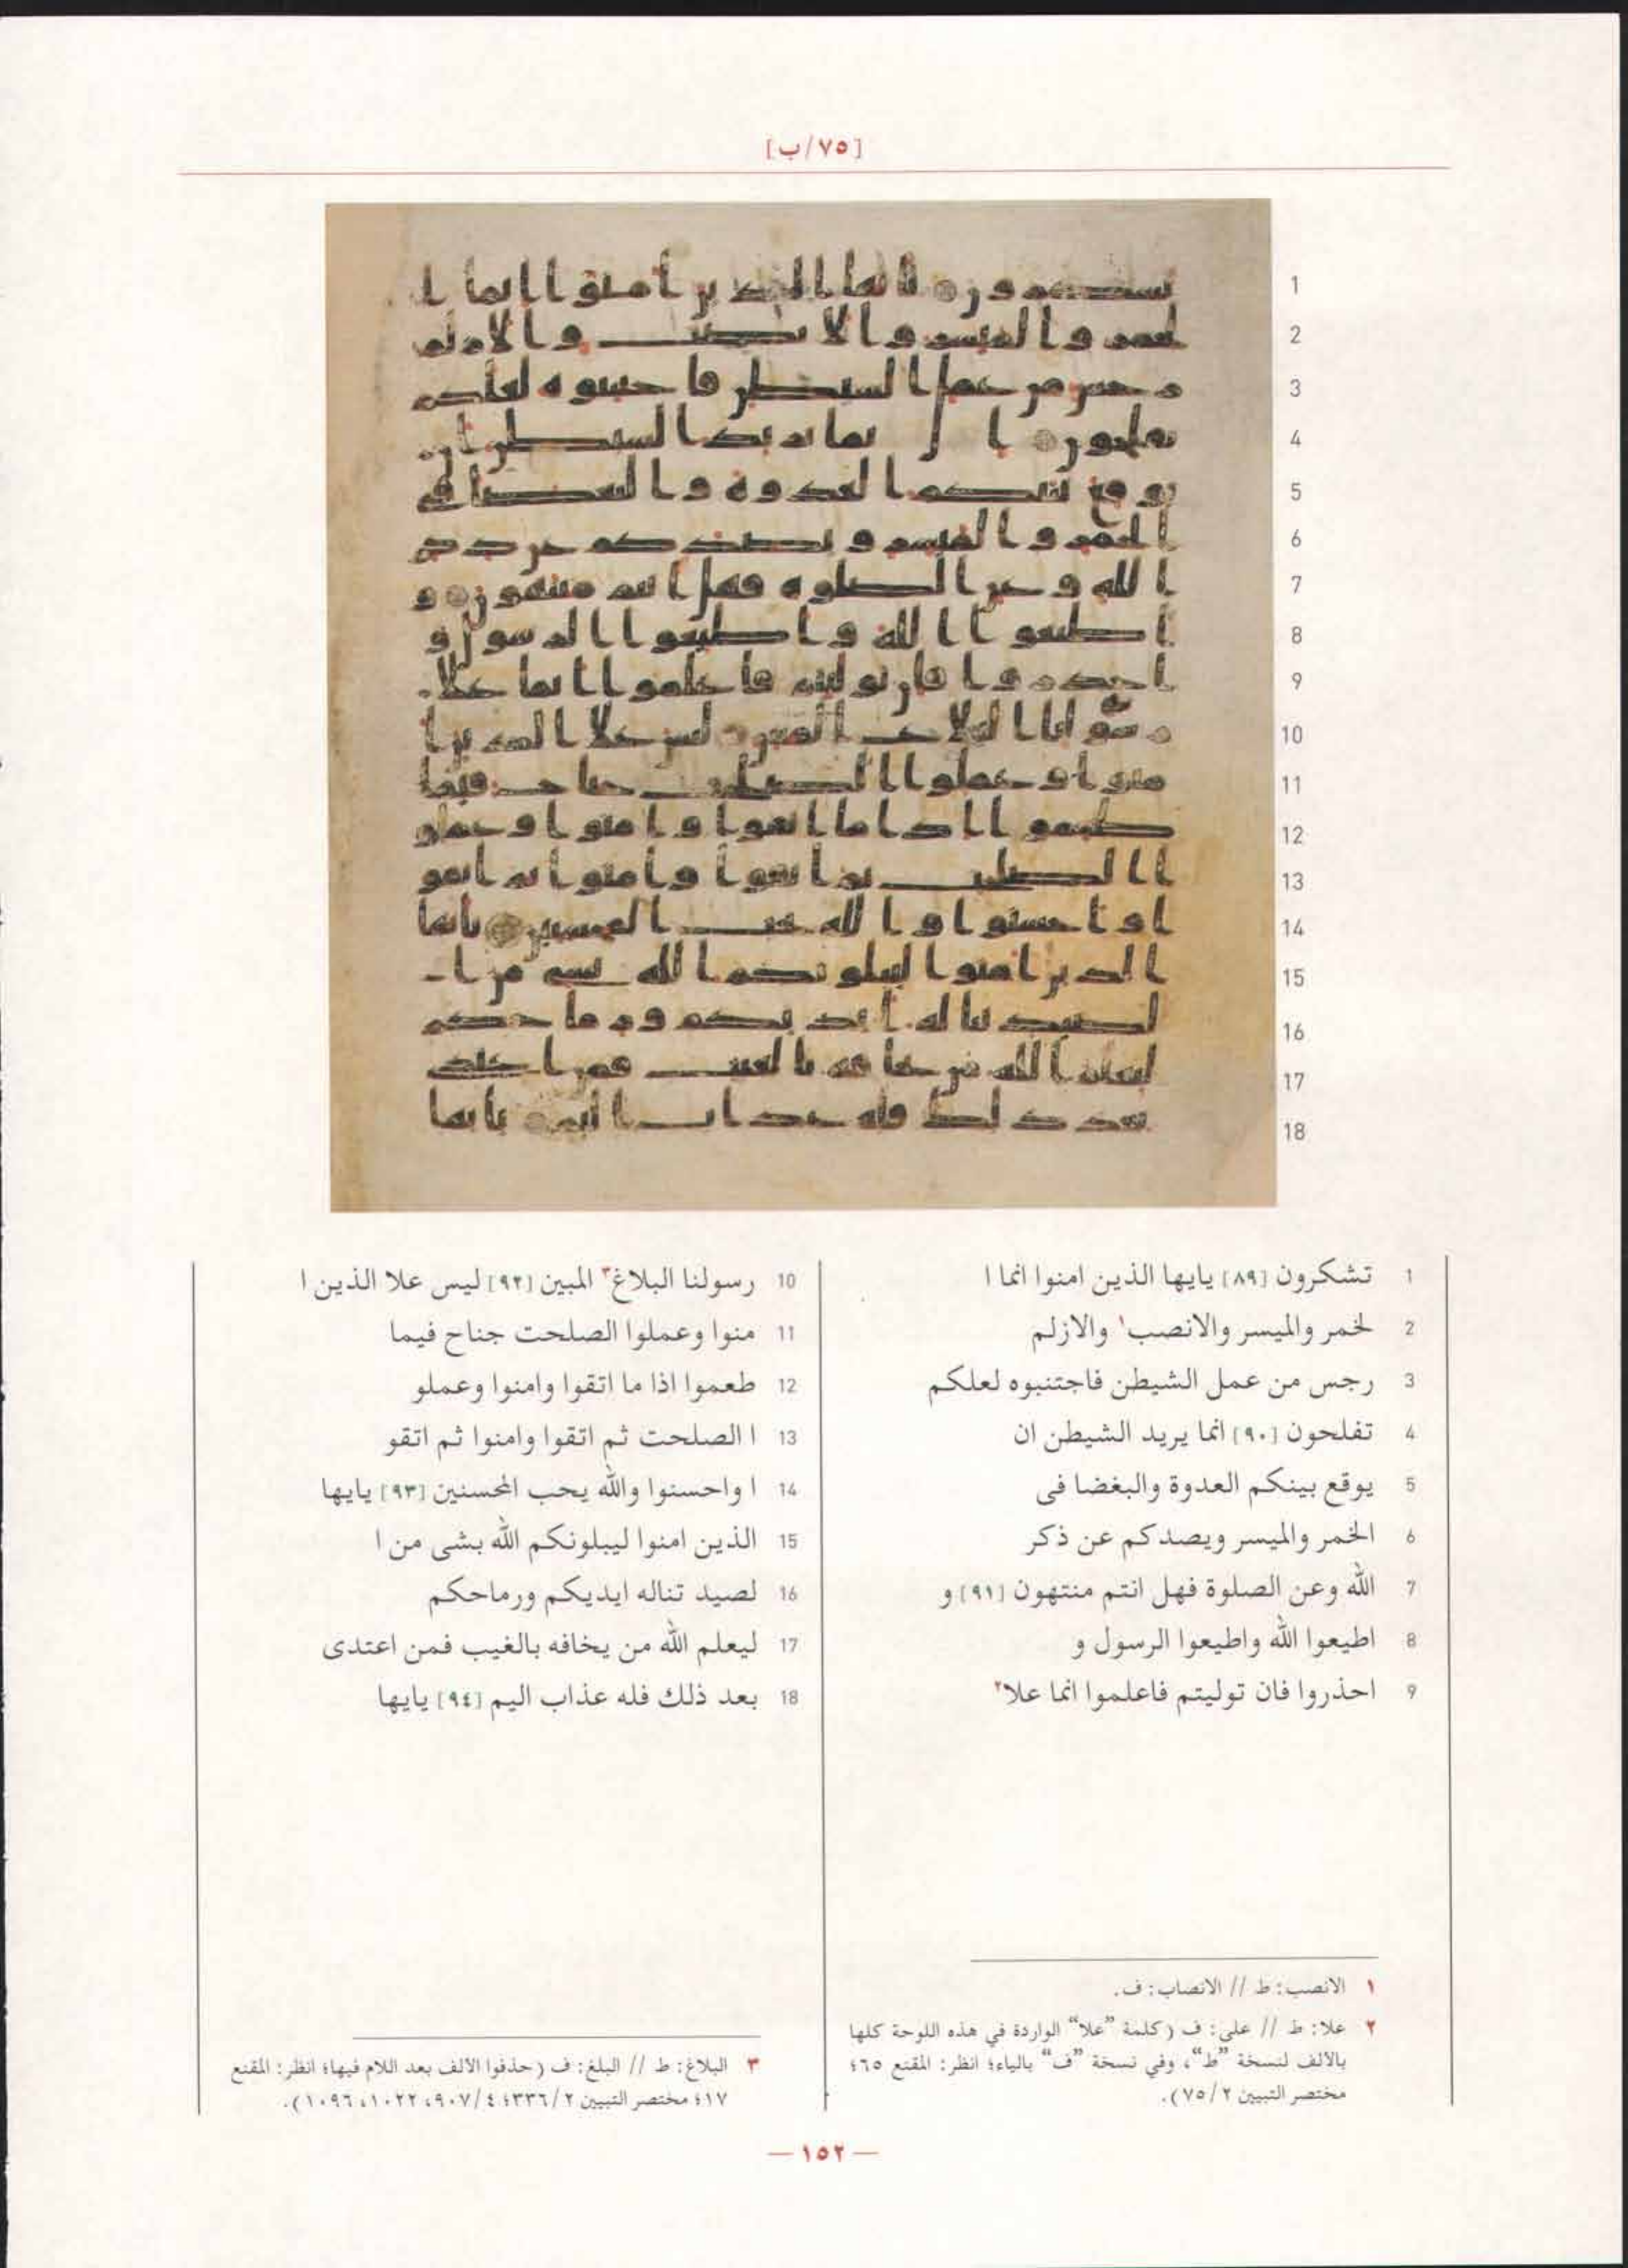 [٧٥/ب]
1 تشكرون [٨٩] يايها الذين امنوا انما ا
2 لخمر والميسر والانصب١ والازلم
3 رجس من عمل الشيطن فاجتنبوه لعلكم
4 تفلحون [٩٠] انما يريد الشيطن ان
5 يوقع بينكم العدوة والبغضا فى
6 الخمر والميسر ويصدكم عن ذكر
7 الله وعن الصلوة فهل انتم منتهون [٩١] و
8 اطيعوا الله واطيعوا الرسول و
9 احذروا فان توليتم فاعلموا انما علا٢
10 رسولنا البلاغ٣ المبين [٩٢] ليس علا الذين ا
11 منوا وعملوا الصلحت جناح فيما
12 طعموا اذا ما اتقوا وامنوا وعملو
13 ا الصلحت ثم اتقوا وامنوا ثم اتقو
14 ا واحسنوا والله يحب المحسنين [٩٣] يايها
15 الذين امنوا ليبلونكم الله بشى من ا
16 لصيد تناله ايديكم ورماحكم
17 ليعلم الله من يخافه بالغيب فمن اعتدى
18 بعد ذلك فله عذاب اليم [٩٤] يايها
١ الانصب: ط // الانصاب: ف.
٢ علا: ط // على: ف (كلمة "علا" الواردة في هذه اللوحة كلها
بالألف لنسخة "ط"، وفي نسخة "ف" بالياء؛ انظر: المقنع ٦٥؛
مختصر التبيين ٧٥/٢).
٣ البلاغ: ط // البلغ: ف (حذفوا الألف بعد اللام فيها؛ انظر: المقنع
١٧؛ مختصر التبيين ٣٣٦/٢؛ ٩٠٧/٤، ١٠٢٢، ١٠٩٦).
— ١٥٢ —